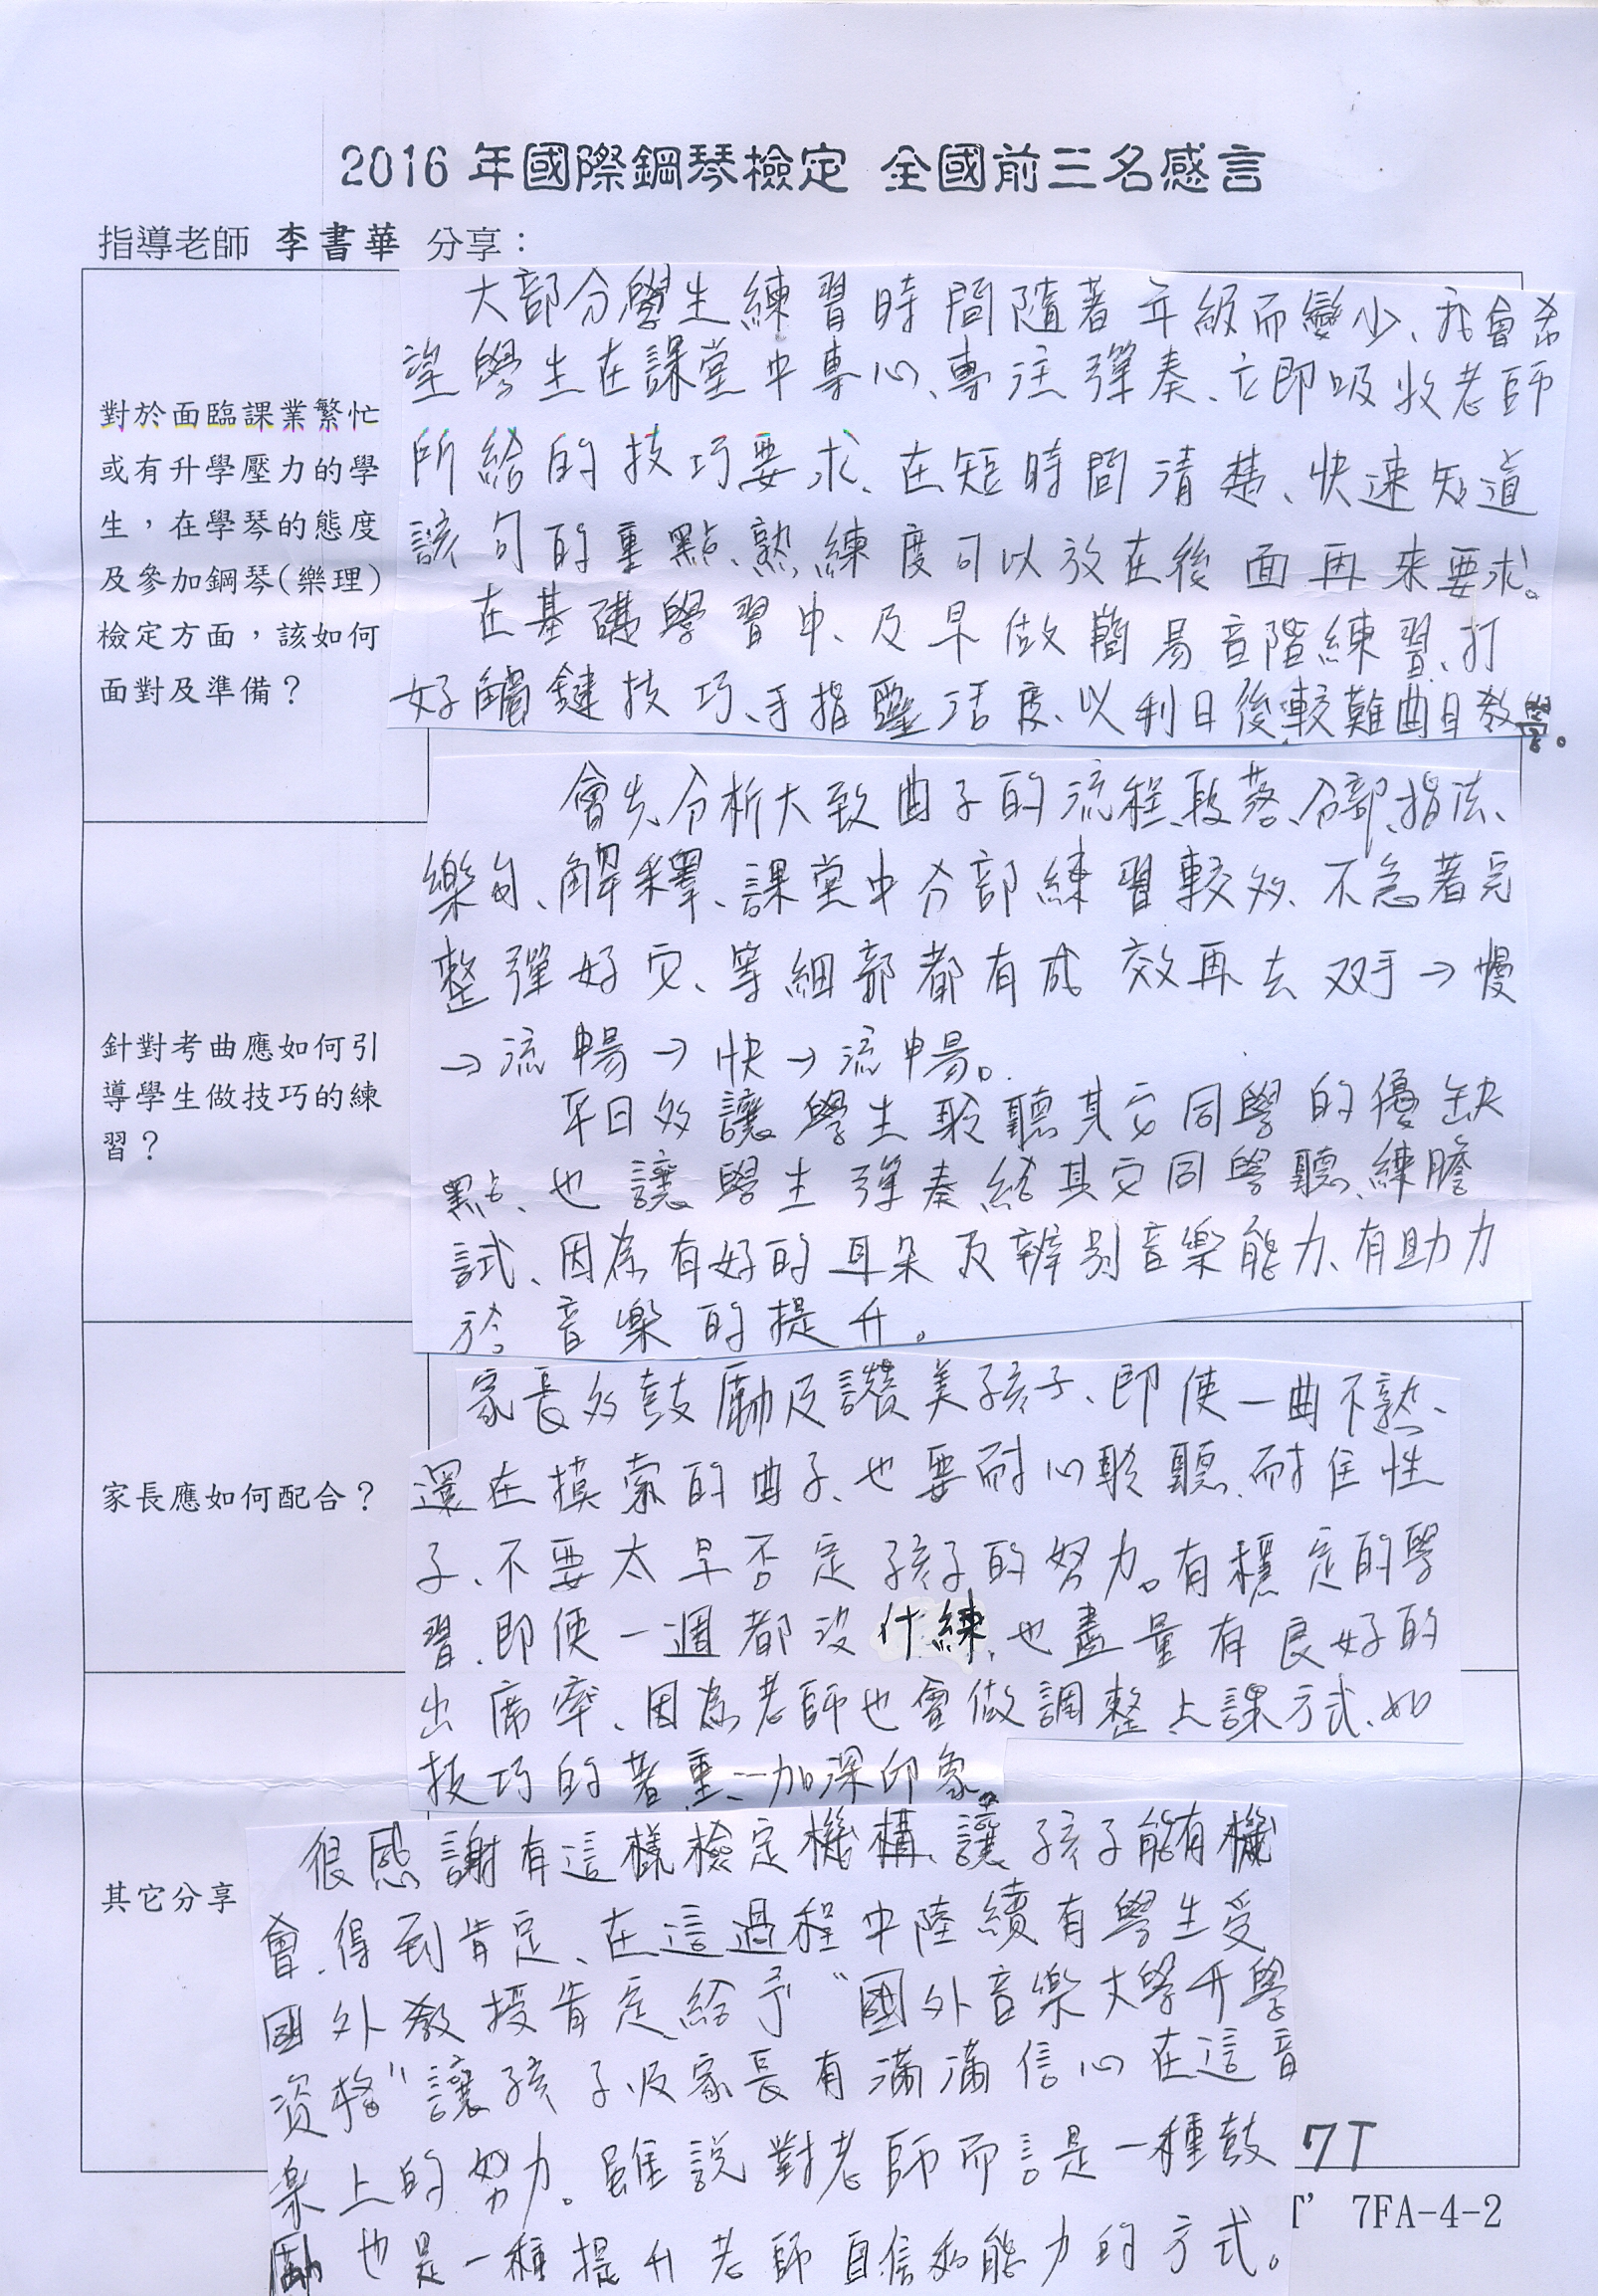 2016 年國際鋼琴檢定 全國前三名感言
指導老師 李書華 分享：
對於面臨課業繁忙
或有升學壓力的學
生，在學琴的態度
及參加鋼琴(樂理)
檢定方面，該如何
面對及準備？
大部分學生練習時間隨著年級而變少、我會希
望學生在課堂中專心、專注彈奏、立即吸收老師
所給的技巧要求、在短時間清楚、快速知道
該句的重點、熟練度可以放在後面再來要求。
在基礎學習中、及早做簡易音階練習、打
好觸鍵技巧、手指靈活度、以利日後較難曲目教學。
針對考曲應如何引
導學生做技巧的練
習？
會先分析大致曲子的流程、段落、分部、指法、
樂句、解釋、課堂中分部練習較多、不急著完
整彈好它、等細部都有成效再去双手→慢
→流暢→快→流暢。
平日多讓學生聆聽其它同學的優缺
點、也讓學生彈奏給其它同學聽、練膽
試、因為有好的耳朵及辨別音樂能力、有助力
於音樂的提升。
家長應如何配合？
家長多鼓勵及讚美孩子、即使一曲不熟、
還在摸索的曲子、也要耐心聆聽、耐住性
子、不要太早否定孩子的努力。有穩定的學
習、即使一週都沒什練、也盡量有良好的
出席率、因為老師也會做調整上課方式、如
技巧的著重…加深印象。
其它分享
很感謝有這樣檢定機構、讓孩子能有機
會、得到肯定、在這過程中陸續有學生受
國外教授肯定給予“國外音樂大學升學
資格"讓孩子及家長有滿滿信心在這音
樂上的努力。雖說對老師而言是一種鼓
勵也是一種提升老師自信和能力的方式。
7T
T' 7FA-4-2